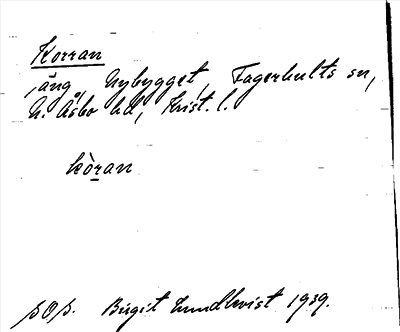 Korran
äng, Nybygget, Fagerhults sn,
N. Åsbo hd, Krist. l.
kòran
Birgit Lundkvist 1939.